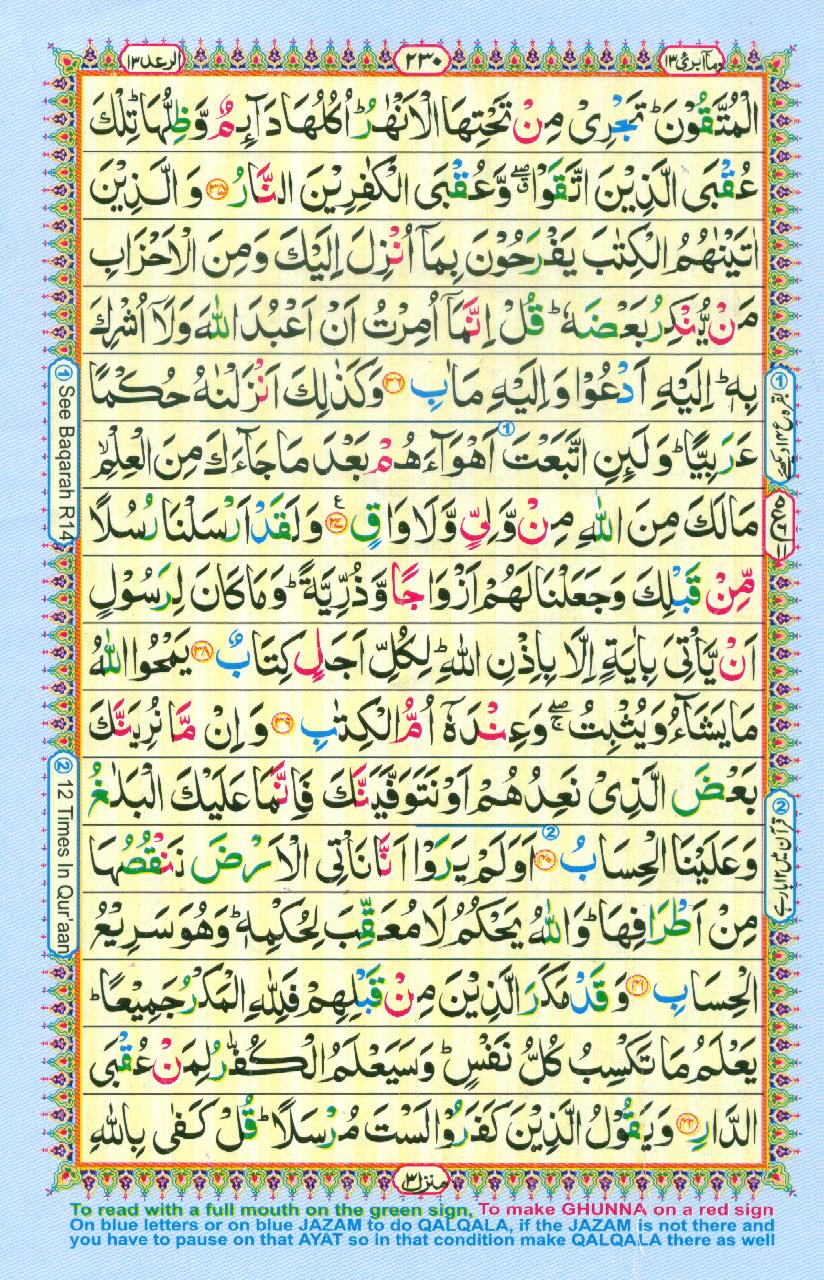 الرعد ١٣
٢٣٠
وما ابرئ ١٣
الْمُتَّقُوْنَ ؕ تَجْرِیْ مِنْ تَحْتِهَا الْاَنْهٰرُ ؕ اُكُلُهَا دَآىِٕمٌ وَّظِلُّهَا ؕ تِلْكَ
عُقْبَی الَّذِیْنَ اتَّقَوْا ۖۗ وَّعُقْبَی الْكٰفِرِیْنَ النَّارُ ۝۳۵ وَ الَّذِیْنَ
اٰتَیْنٰهُمُ الْكِتٰبَ یَفْرَحُوْنَ بِمَاۤ اُنْزِلَ اِلَیْكَ وَمِنَ الْاَحْزَابِ
مَنْ یُّنْكِرُ بَعْضَهٗ ؕ قُلْ اِنَّمَاۤ اُمِرْتُ اَنْ اَعْبُدَ اللّٰهَ وَلَاۤ اُشْرِكَ
بِهٖ ؕ اِلَیْهِ اَدْعُوْا وَاِلَیْهِ مَاٰبِ ۝۳۶ وَكَذٰلِكَ اَنْزَلْنٰهُ حُكْمًا
عَرَبِیًّا ؕ وَلَىِٕنِ اتَّبَعْتَ ① اَهْوَآءَهُمْ بَعْدَ مَا جَآءَكَ مِنَ الْعِلْمِ ۙ
مَا لَكَ مِنَ اللّٰهِ مِنْ وَّلِیٍّ وَّلَا وَاقٍ ۝۳۷ ع وَلَقَدْ اَرْسَلْنَا رُسُلًا
مِّنْ قَبْلِكَ وَجَعَلْنَا لَهُمْ اَزْوَاجًا وَّذُرِّیَّةً ؕ وَمَا كَانَ لِرَسُوْلٍ
اَنْ یَّاْتِیَ بِاٰیَةٍ اِلَّا بِاِذْنِ اللّٰهِ ؕ لِكُلِّ اَجَلٍ كِتَابٌ ۝۳۸ یَمْحُوا اللّٰهُ
مَا یَشَآءُ وَیُثْبِتُ ۖۚ وَعِنْدَهٗۤ اُمُّ الْكِتٰبِ ۝۳۹ وَاِنْ مَّا نُرِیَنَّكَ
بَعْضَ الَّذِیْ نَعِدُهُمْ اَوْ نَتَوَفَّیَنَّكَ فَاِنَّمَا عَلَیْكَ الْبَلٰغُ
وَعَلَیْنَا الْحِسَابُ ۝۴۰ ② اَوَلَمْ یَرَوْا اَنَّا نَاْتِی الْاَرْضَ نَنْقُصُهَا
مِنْ اَطْرَافِهَا ؕ وَاللّٰهُ یَحْكُمُ لَا مُعَقِّبَ لِحُكْمِهٖ ؕ وَهُوَ سَرِیْعُ
الْحِسَابِ ۝۴۱ وَقَدْ مَكَرَ الَّذِیْنَ مِنْ قَبْلِهِمْ فَلِلّٰهِ الْمَكْرُ جَمِیْعًا ؕ
یَعْلَمُ مَا تَكْسِبُ كُلُّ نَفْسٍ ؕ وَسَیَعْلَمُ الْكُفّٰرُ لِمَنْ عُقْبَی
الدَّارِ ۝۴۲ وَیَقُوْلُ الَّذِیْنَ كَفَرُوْا لَسْتَ مُرْسَلًا ؕ قُلْ كَفٰی بِاللّٰهِ
① See Baqarah R14
② 12 Times In Qur'aan
② قرآن میں ۱۲ بار ہے
منزل ٣
To read with a full mouth on the green sign, To make GHUNNA on a red sign
On blue letters or on blue JAZAM to do QALQALA, if the JAZAM is not there and
you have to pause on that AYAT so in that condition make QALQALA there as well